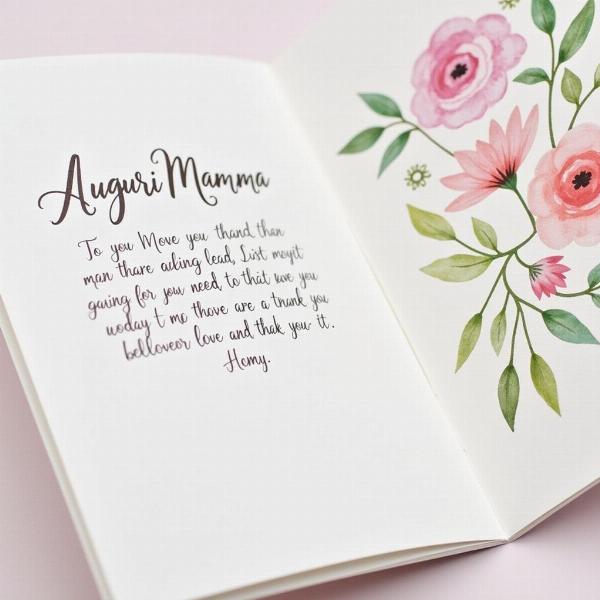 Auguri Mamma
To you Move you thand than
man thare ailing lead, List moyit
gaving for you need to that wve you
uoday t me thove are a trank you
belloveor love and thak you it.
Homy.